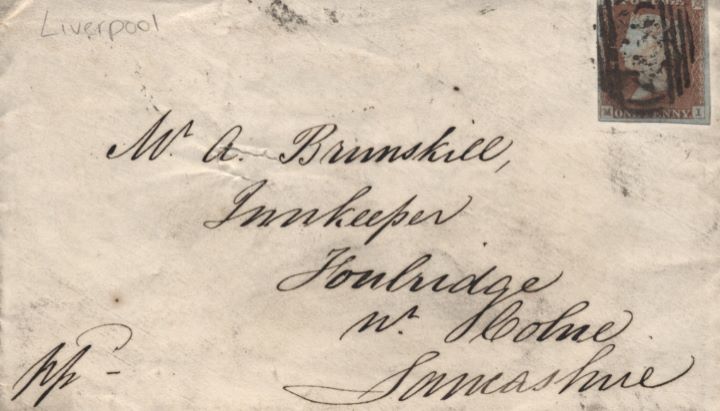 Liverpool
M I
ONE PENNY
Mr A. Brunskill,
Innkeeper
Foulridge
nr. Colne
pp-
Lancashire